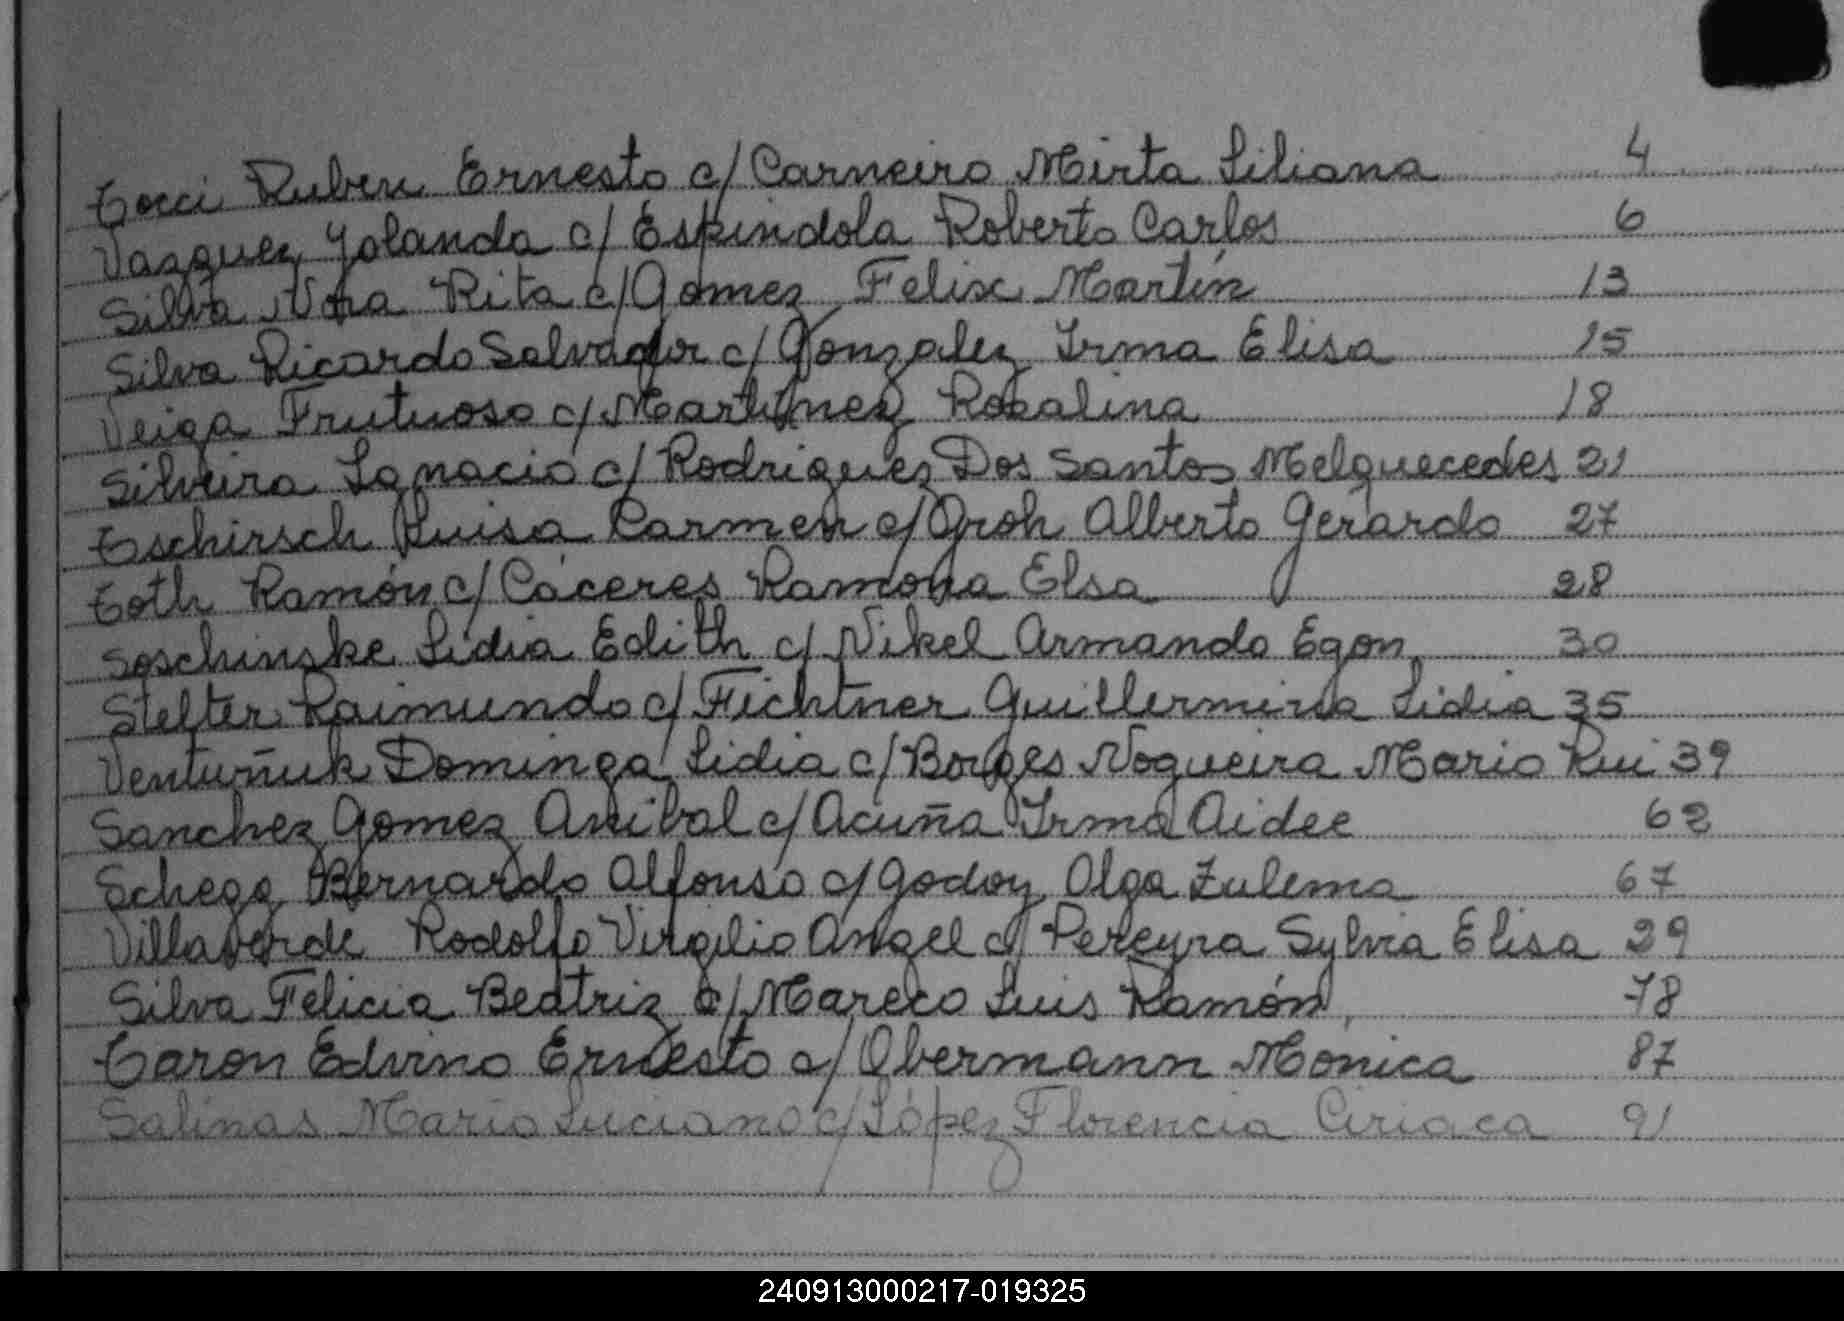 Tocci Ruben Ernesto c/ Carneiro Mirta Liliana 4
Vazquez Yolanda c/ Espindola Roberto Carlos 6
Silva Nora Rita c/ Gomez Felix Martín 13
Silva Ricardo Salvador c/ Gonzalez Irma Elisa 15
Veiga Frutuoso c/ Martinez Rosalina 18
Silveira Ignacio c/ Rodriguez Dos Santos Melquecedes 21
Tschirsch Luisa Carmen c/ Groh Alberto Gerardo 27
Toth Ramón c/ Cáceres Ramona Elsa 28
Soschinske Lidia Edith c/ Nikel Armando Egon 30
Stelter Raimundo c/ Fichtner Guillermina Lidia 35
Venturiñuk Dominga Lidia c/ Borges Nogueira Mario Rui 39
Sanchez Gomez Anibal c/ Acuña Irma Aidee 62
Bernardo Alfonso c/ Godoy Olga Zulema 67
Villaverde Rodolfo Virgilio Angel c/ Pereyra Sylvia Elisa 29
Silva Felicia Beatriz c/ Mareco Luis Ramón 78
Taron Edvino Ernesto c/ Obermann Monica 87
Salinas Mario Luciano c/ López Florencia Ciriaca 91
240913000217-019325